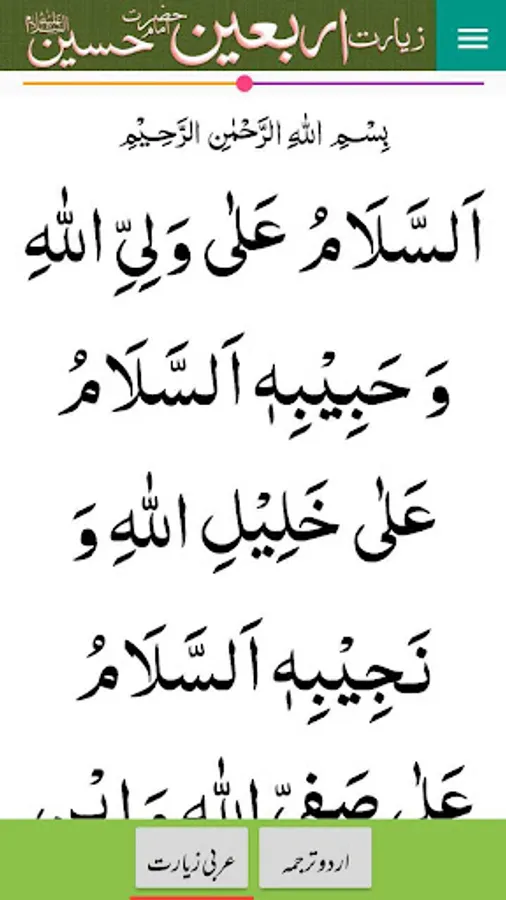 زیارت اربعین حضرت امام حسین علیہ السلام
بِسْمِ اللهِ الرَّحْمٰنِ الرَّحِیْمِ
اَلسَّلَامُ عَلٰی وَلِیِّ اللهِ
وَ حَبِیْبِهٖ اَلسَّلَامُ
عَلٰی خَلِیْلِ اللهِ وَ
نَجِیْبِهٖ اَلسَّلَامُ
عَلٰی صَفِیِّ اللهِ وَ ابْنِ
اردو ترجمہ
عربی زیارت